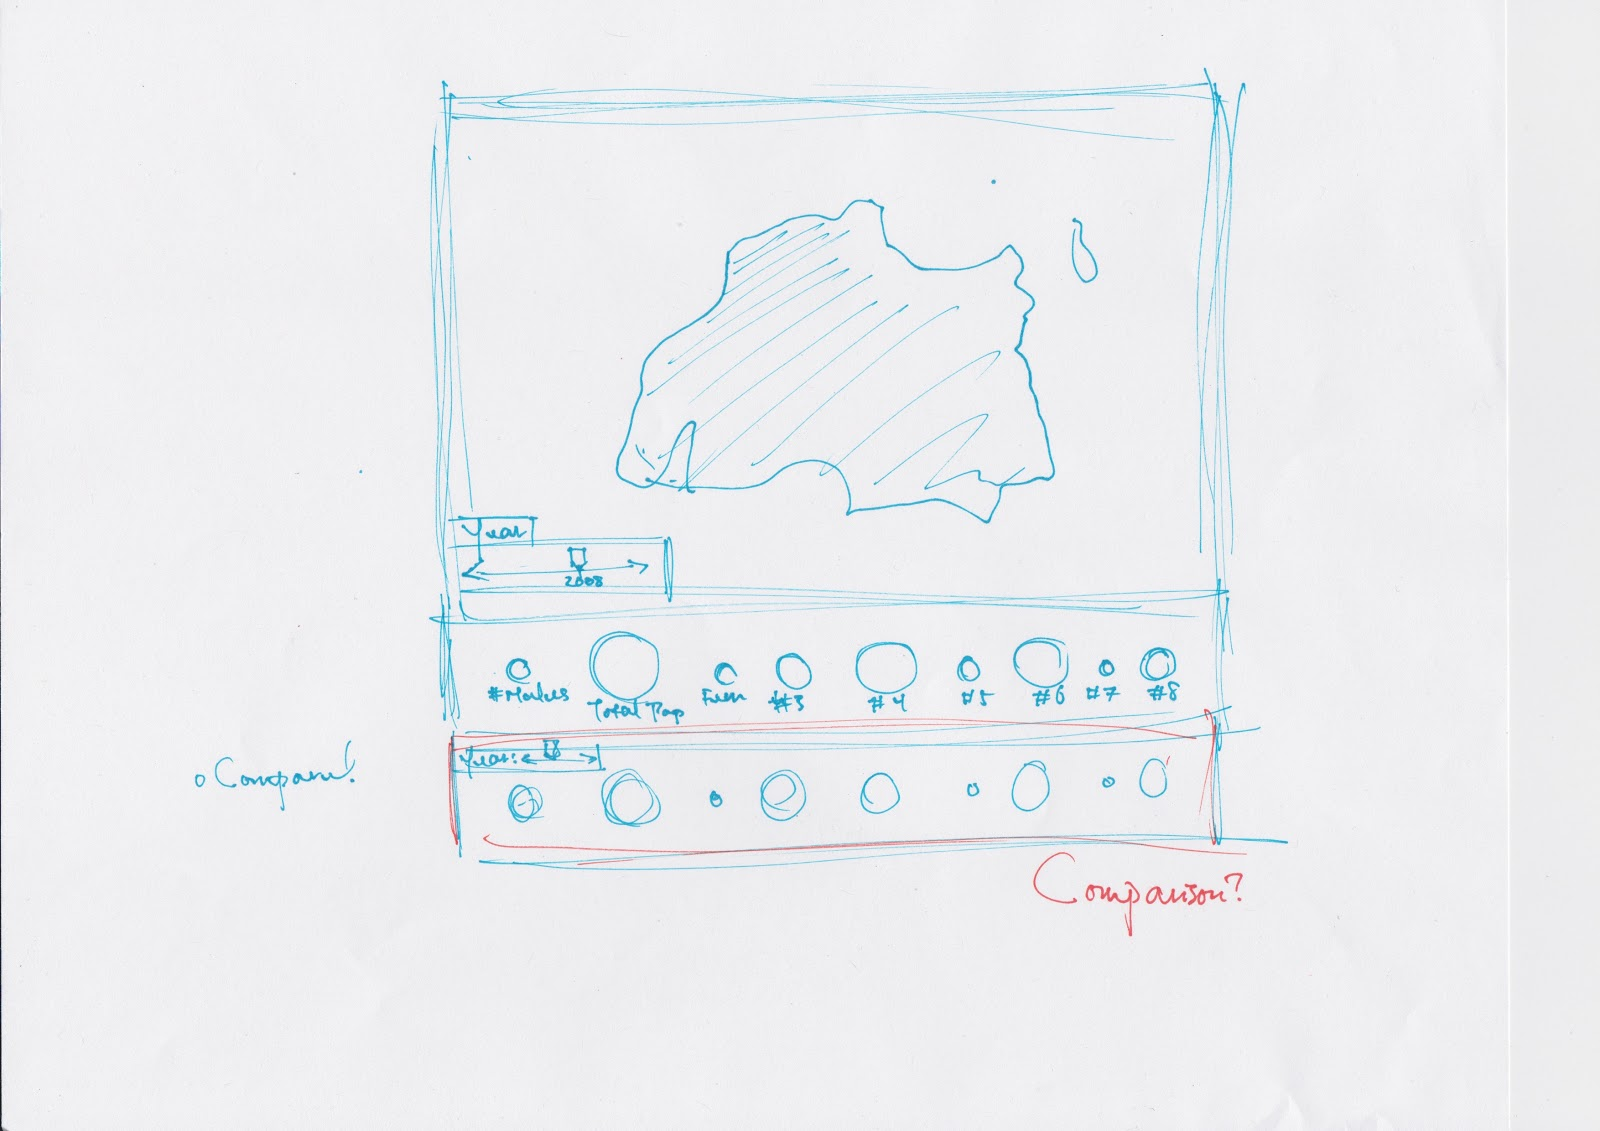 Year
2008
#Males
Total Pop
Fem
#3
#4
#5
#6
#7
#8
Year:
Compare!
Comparison?